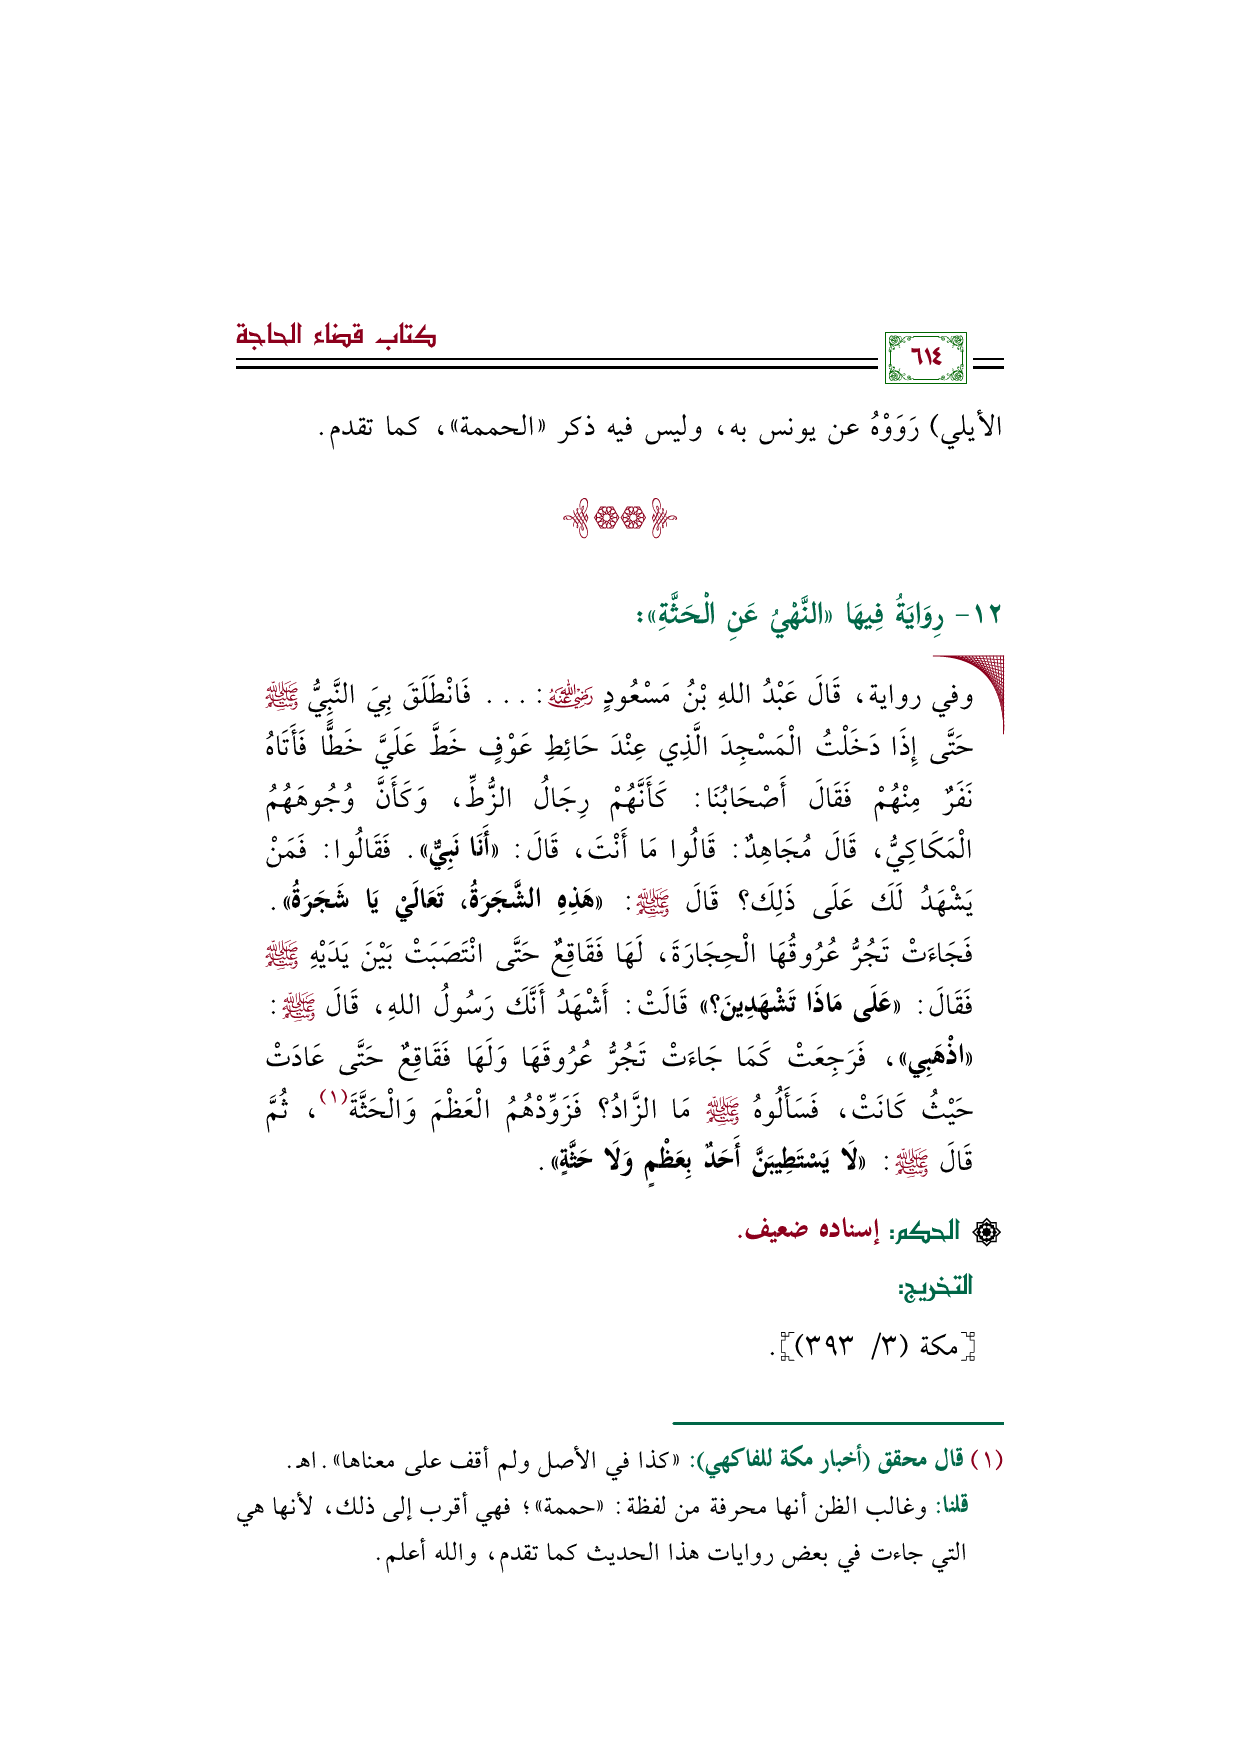 كتاب قضاء الحاجة
٦١٤
الأيلي) رَوَوْهُ عن يونس به، وليس فيه ذكر «الحممة»، كما تقدم.
١٢- رِوَايَةُ فِيهَا «النَّهْيُ عَنِ الْحَثَّةِ»:
وفي رواية، قَالَ عَبْدُ اللهِ بْنُ مَسْعُودٍ رضي الله عنه: ... فَانْطَلَقَ بِيَ النَّبِيُّ ﷺ
حَتَّى إِذَا دَخَلْتُ الْمَسْجِدَ الَّذِي عِنْدَ حَائِطِ عَوْفٍ خَطَّ عَلَيَّ خَطًّا فَأَتَاهُ
نَفَرٌ مِنْهُمْ فَقَالَ أَصْحَابُنَا: كَأَنَّهُمْ رِجَالُ الزُّطِّ، وَكَأَنَّ وُجُوهَهُمُ
الْمَكَاكِيُّ، قَالَ مُجَاهِدٌ: قَالُوا مَا أَنْتَ، قَالَ: «أَنَا نَبِيٌّ». فَقَالُوا: فَمَنْ
يَشْهَدُ لَكَ عَلَى ذَلِكَ؟ قَالَ ﷺ: «هَذِهِ الشَّجَرَةُ، تَعَالَيْ يَا شَجَرَةُ».
فَجَاءَتْ تَجُرُّ عُرُوقُهَا الْحِجَارَةَ، لَهَا فَقَاقِعٌ حَتَّى انْتَصَبَتْ بَيْنَ يَدَيْهِ ﷺ
فَقَالَ: «عَلَى مَاذَا تَشْهَدِينَ؟» قَالَتْ: أَشْهَدُ أَنَّكَ رَسُولُ اللهِ، قَالَ ﷺ:
«اذْهَبِي»، فَرَجِعَتْ كَمَا جَاءَتْ تَجُرُّ عُرُوقَهَا وَلَهَا فَقَاقِعٌ حَتَّى عَادَتْ
حَيْثُ كَانَتْ، فَسَأَلُوهُ ﷺ مَا الزَّادُ؟ فَزَوِّدْهُمُ الْعَظْمَ وَالْحَثَّةَ(١)، ثُمَّ
قَالَ ﷺ: «لَا يَسْتَطِيبَنَّ أَحَدٌ بِعَظْمٍ وَلَا حَثَّةٍ».
الحكم: إسناده ضعيف.
التخريج:
[مكة (٣/ ٣٩٣)].
(١) قال محقق (أخبار مكة للفاكهي): «كذا في الأصل ولم أقف على معناها». اهـ.
قلنا: وغالب الظن أنها محرفة من لفظة: «حممة»؛ فهي أقرب إلى ذلك، لأنها هي
التي جاءت في بعض روايات هذا الحديث كما تقدم، والله أعلم.